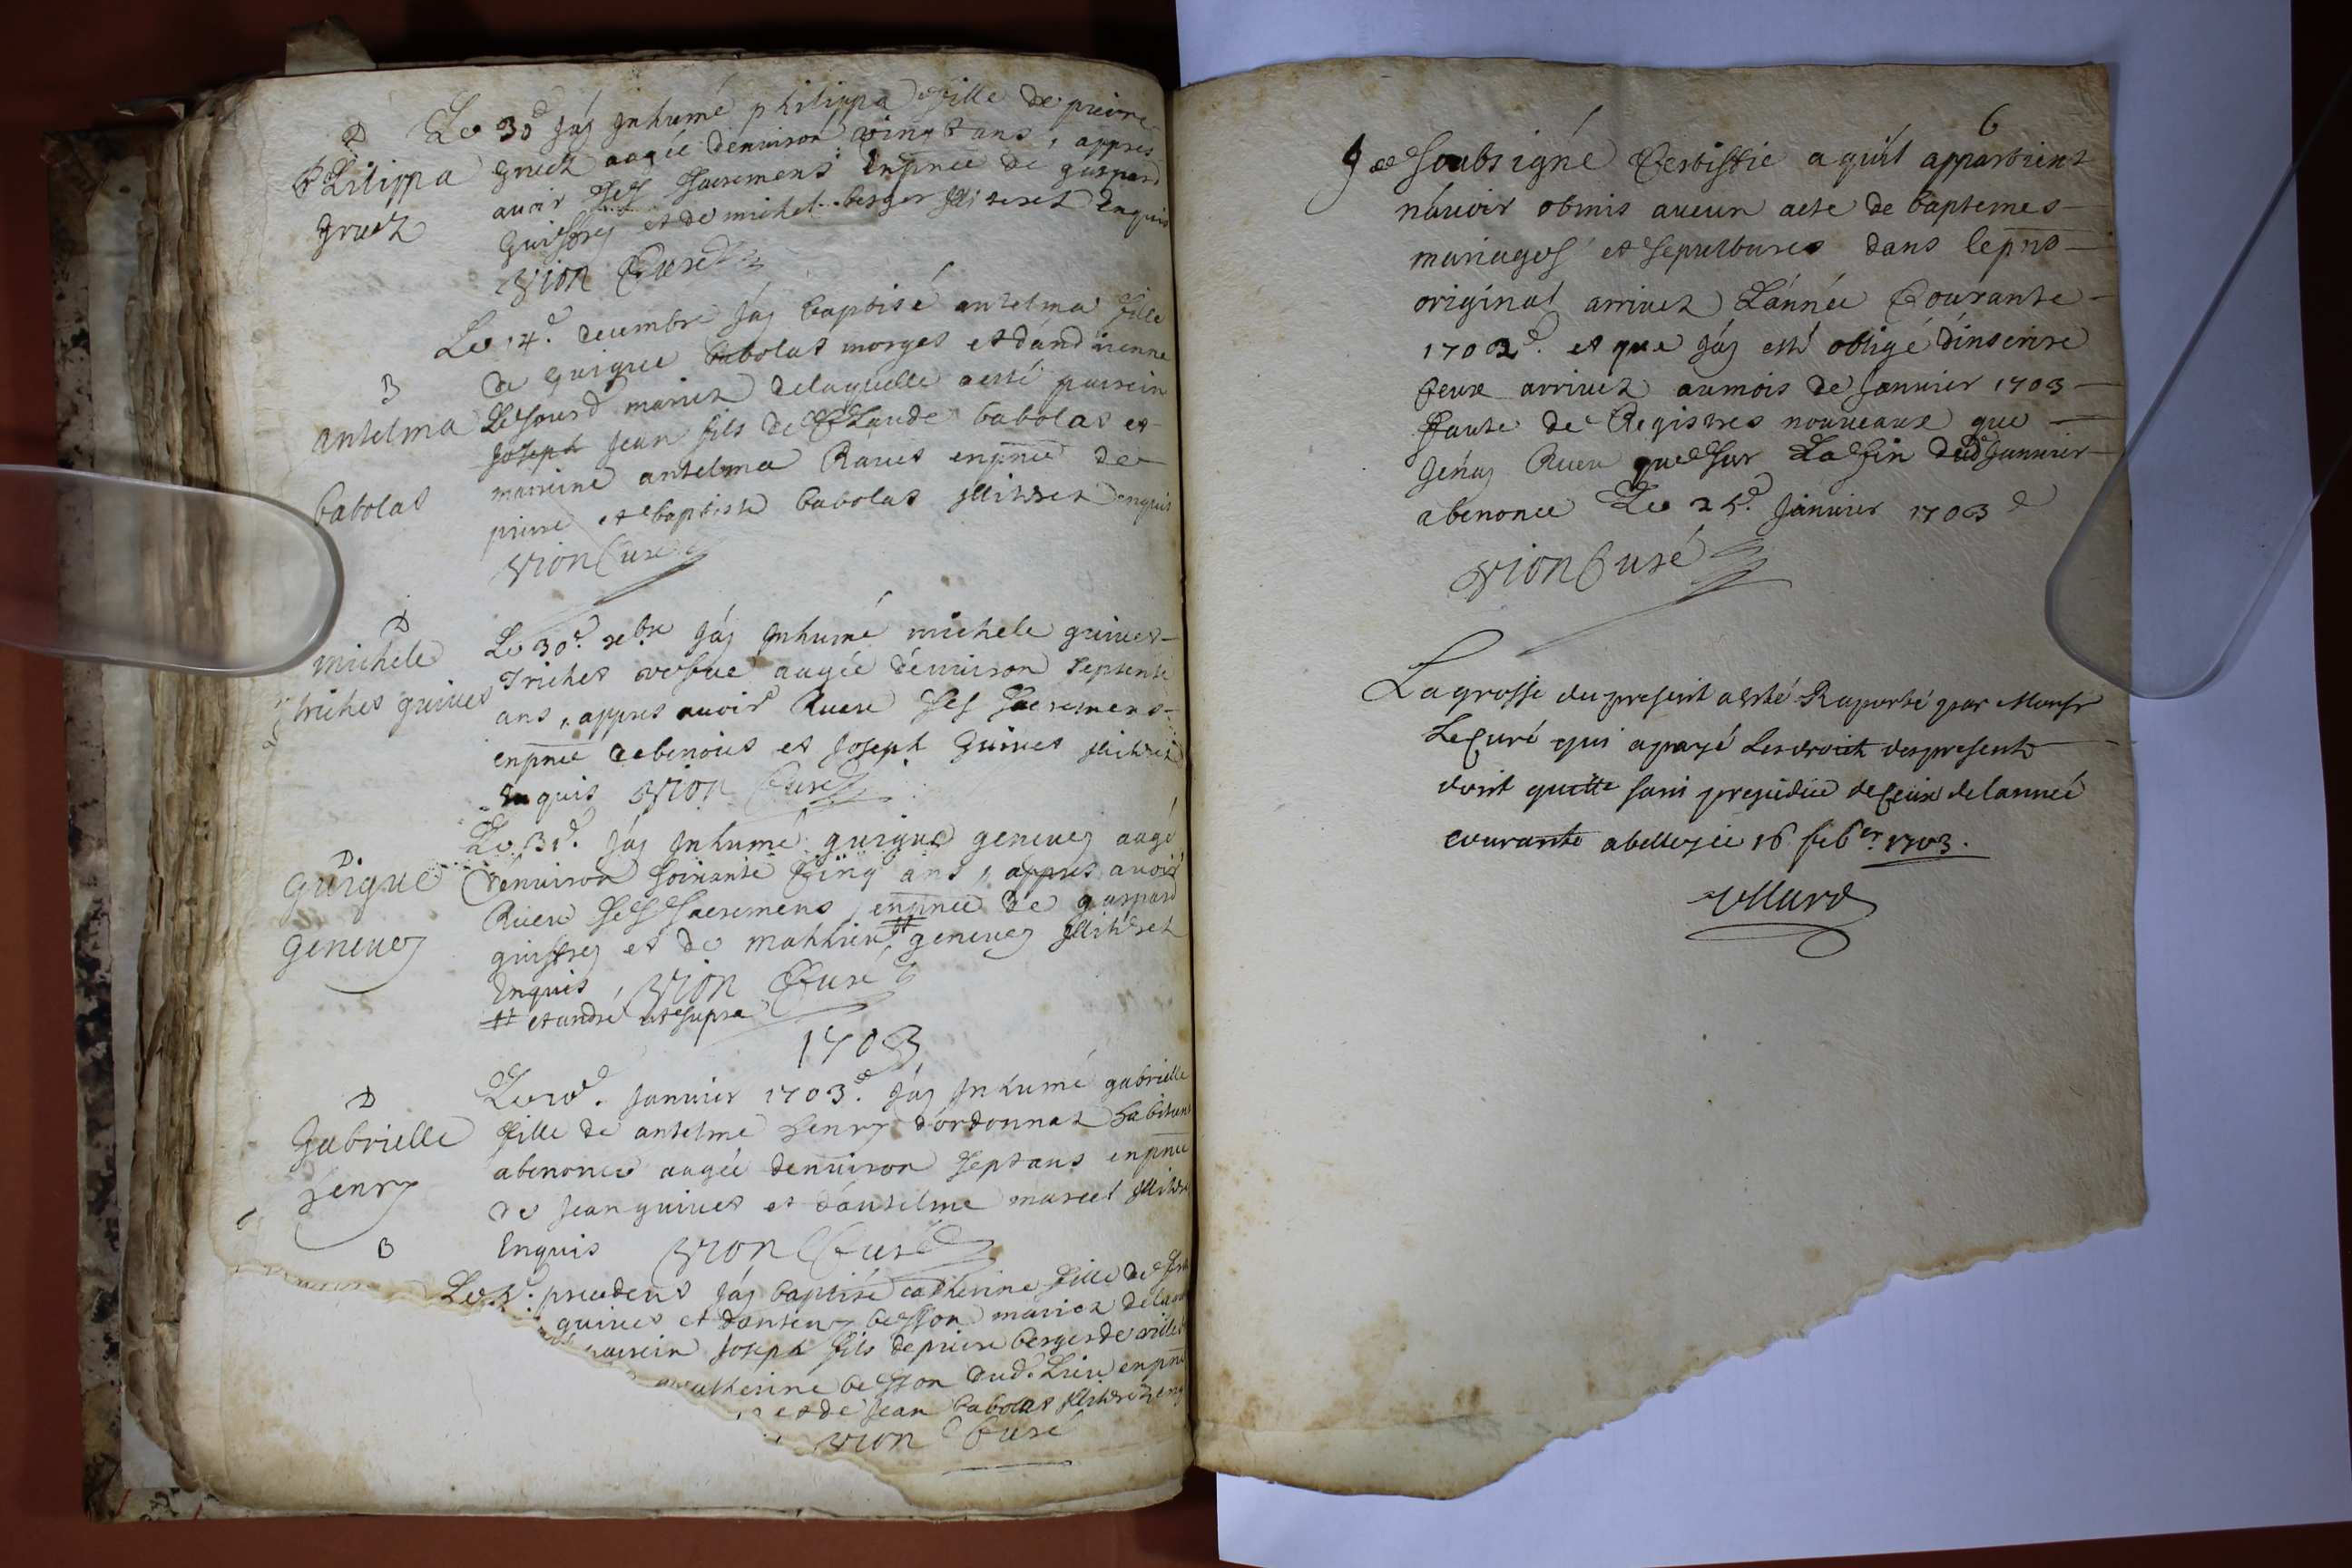 D
philippa
gruel
Le 30e Jáy Inhumé philippa fille de pierre
gruel aagée denuiron vingt ans, appres
auoir ses sacremens Enpnce de guspard
guiffrey et de michel berger Illiterez Enquis
vion Curé
B
antelma
babolat
Le 14e. decembre Jáy baptisé antelma fille
de guigue babolat morges et dánd
mariez delaquelle a esté parrein
Joseph Jean fils de Claude babolat et
marrine antelma Rauet enpnce de
pierre et baptiste babolat Illitrez enquis
vion Curé
D
michele
triches guiuet
Le 30e. xbre Jáy Inhumé michele guiuet
Triches vefue aagée dénuiron septente
ans, appres auoir Receu ses sacremens
enpnce de benoict et Joseph guiuet Illitrez
Enquis vion Curé
D
guigue
geneuey
Le 31e. Jáy Inhumé guigue geneuey aagé
denuiron soixante Cinq ans, appres auoir
Receu ses sacremens, enpnce de guspard
guiffrey et de mathieu # geneuey Illitrez
Enquis, vion Curé
# et andré ut supra
1703
D
Gabrielle
henry
Le Januier 1703e. Jáy Inhumé gabrielle
fille de antelme henry dordonnat habitant
abenonce aagée denuiron sept ans enpnce
de Jean guiuet et dántelme marcel Illitre
Enquis vion Curé
B
Le précedent Jáy baptisé catherine fille de
guiuet et besson mariez dela
parrein Joseph fils de pierre berger de villet
catherine besson dud. Lieu enpn
et de Jean babolat Illitrez enq
vion Curé
6
Je soubsigné Certiffie a quíl appartient
náuoir obmis aucun acte de baptemes
mariages et sepultures dans lepnt
original arriuez Lánnée Courante
1702e. et que Jáy esté obligé dínscrire
Ceux arriuez aumois de Januier 1703
faute de Registres nouueaux que
Jénáy Receu que sur La fin dud Januier
abenonce Le 25e. Januier 1703
vion Curé
La grosse du present a esté Raporté par Monsr
Le Curé qui a payé Les droict des presents
dont quitte sans prejudice de Ceux de lannée
courante a belley ce 16 feber. 1703.
Vllard